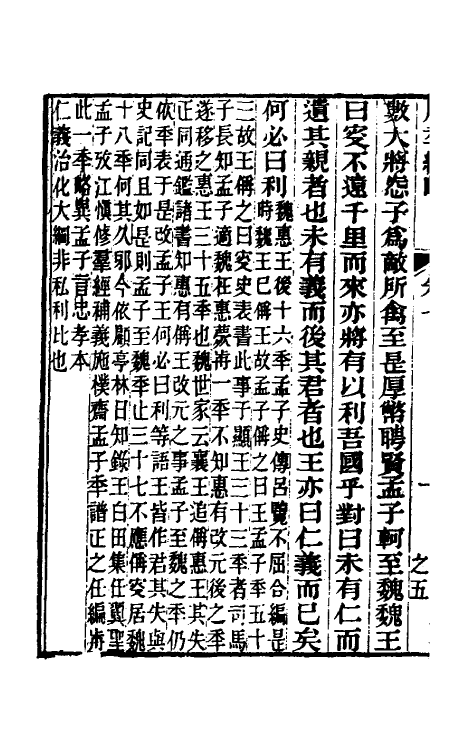 數大將怨子爲敵所禽至是厚幣聘賢孟子軻至魏魏王
曰叟不遠千里而來亦將有以利吾國乎對曰未有仁而
遺其親者也未有義而後其君者也王亦曰仁義而已矣
何必曰利時魏王已偁王故孟子偁之曰王孟子年五十
魏惠王後十六年孟子史傳呂覽不屈合編是
三故王偁之曰叟史表書此事于顯王三十三者司馬
子長知孟子適魏在惠薨歬一年不知惠有改元後之年
遂移之惠王三十五年也魏世家云襄王追偁惠王其失
正同通鑑諸書知惠有偁王改元之事孟子至魏之年仍
依年表于是改孟子王何必曰利等語王皆作君其失與
史記同且如是則孟子至魏年止三十七不應偁叟居魏
十八年何其久邪今依顧亭林日知錄王白田集任翼聖
孟子攷江愼修羣經補義施樸齋孟子年譜正之任編歬
此一年略異孟子言忠孝本
仁義治化大綱非私利比也
之五